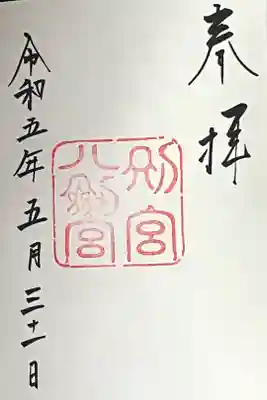 奉拝
別宮
八剣宮
令和五年五月三十一日